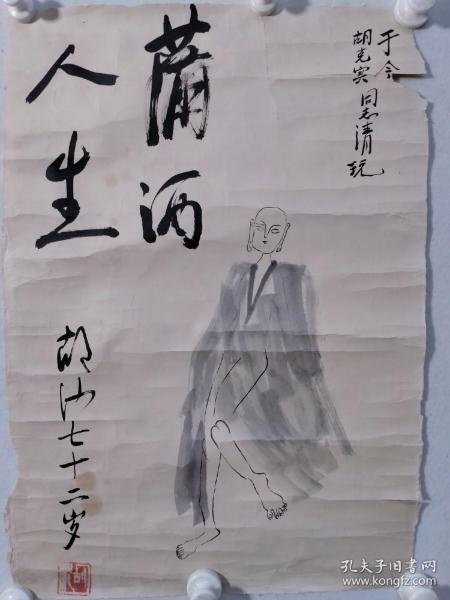 于今
胡克实同志清玩
萧洒
人生
胡沙七十二岁
孔夫子旧书网
www.kongfz.com